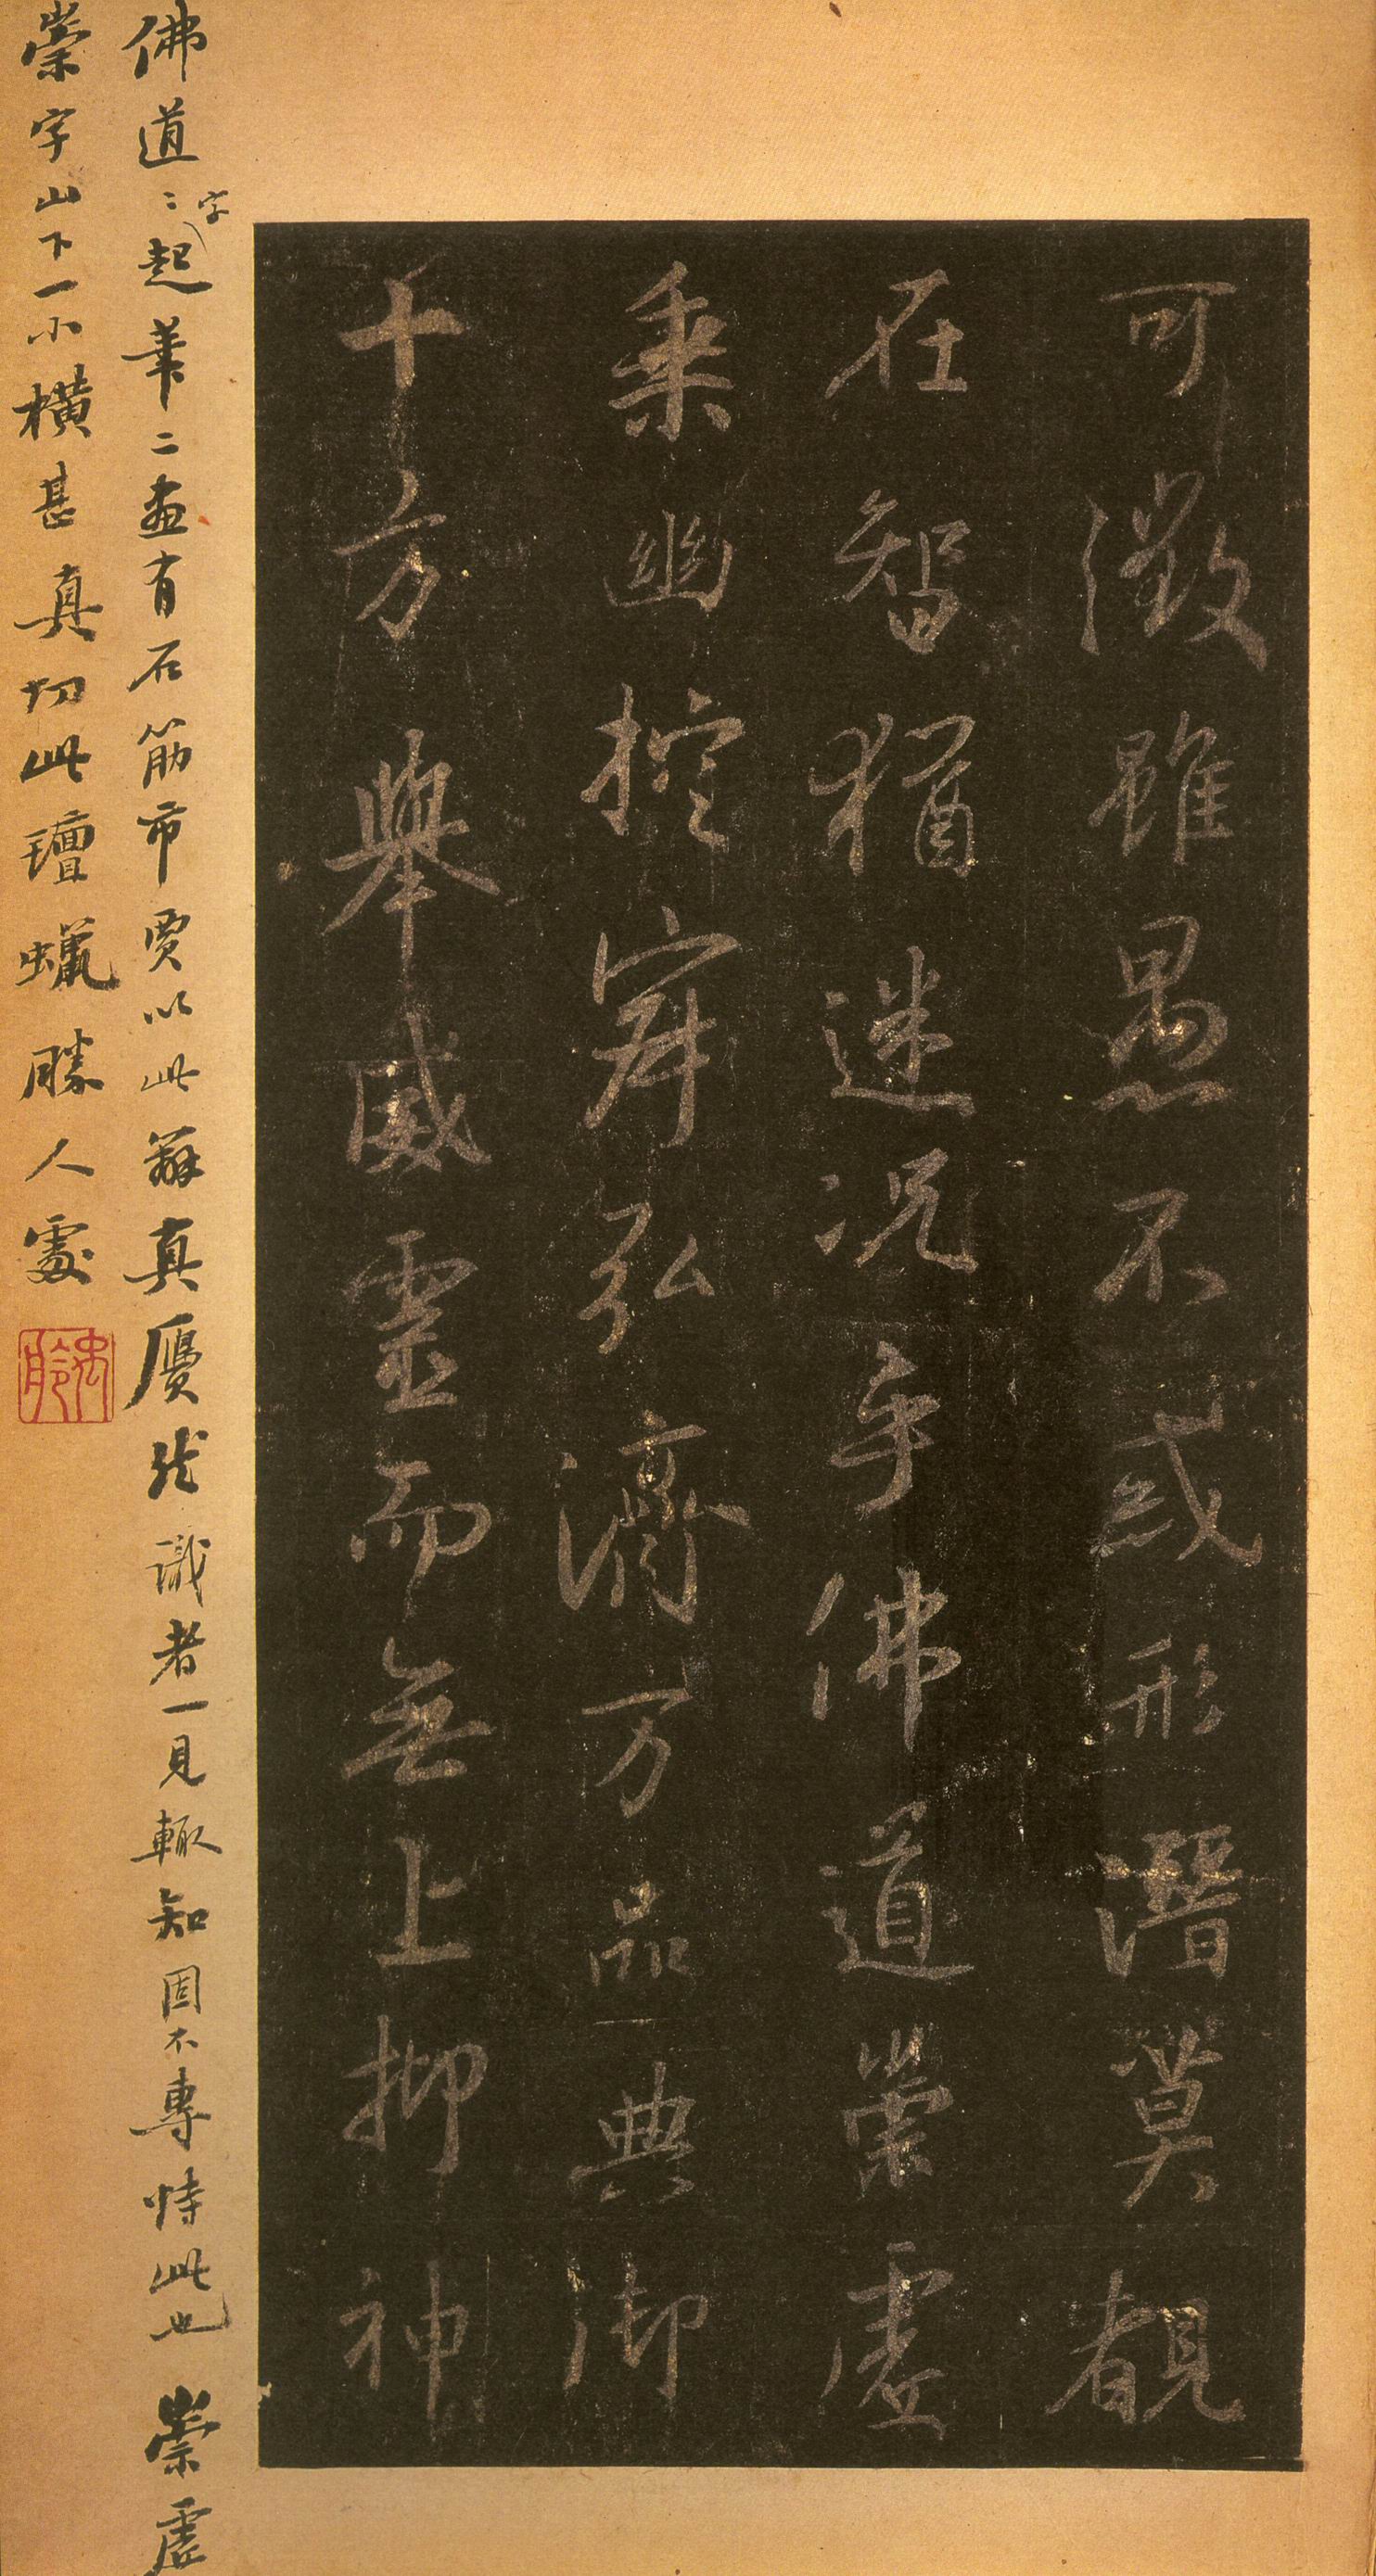 可徵雖愚不惑形潛莫覩
在智猶迷況乎佛道崇虛
乘幽控寂弘濟万品典御
十方舉威靈而無上抑神
佛道二字起筆二畫有石筋市賈以此辨真贋然識者一見輒知固不專恃此也 崇虛
崇字山下一小橫甚真切此氊蠟勝人處